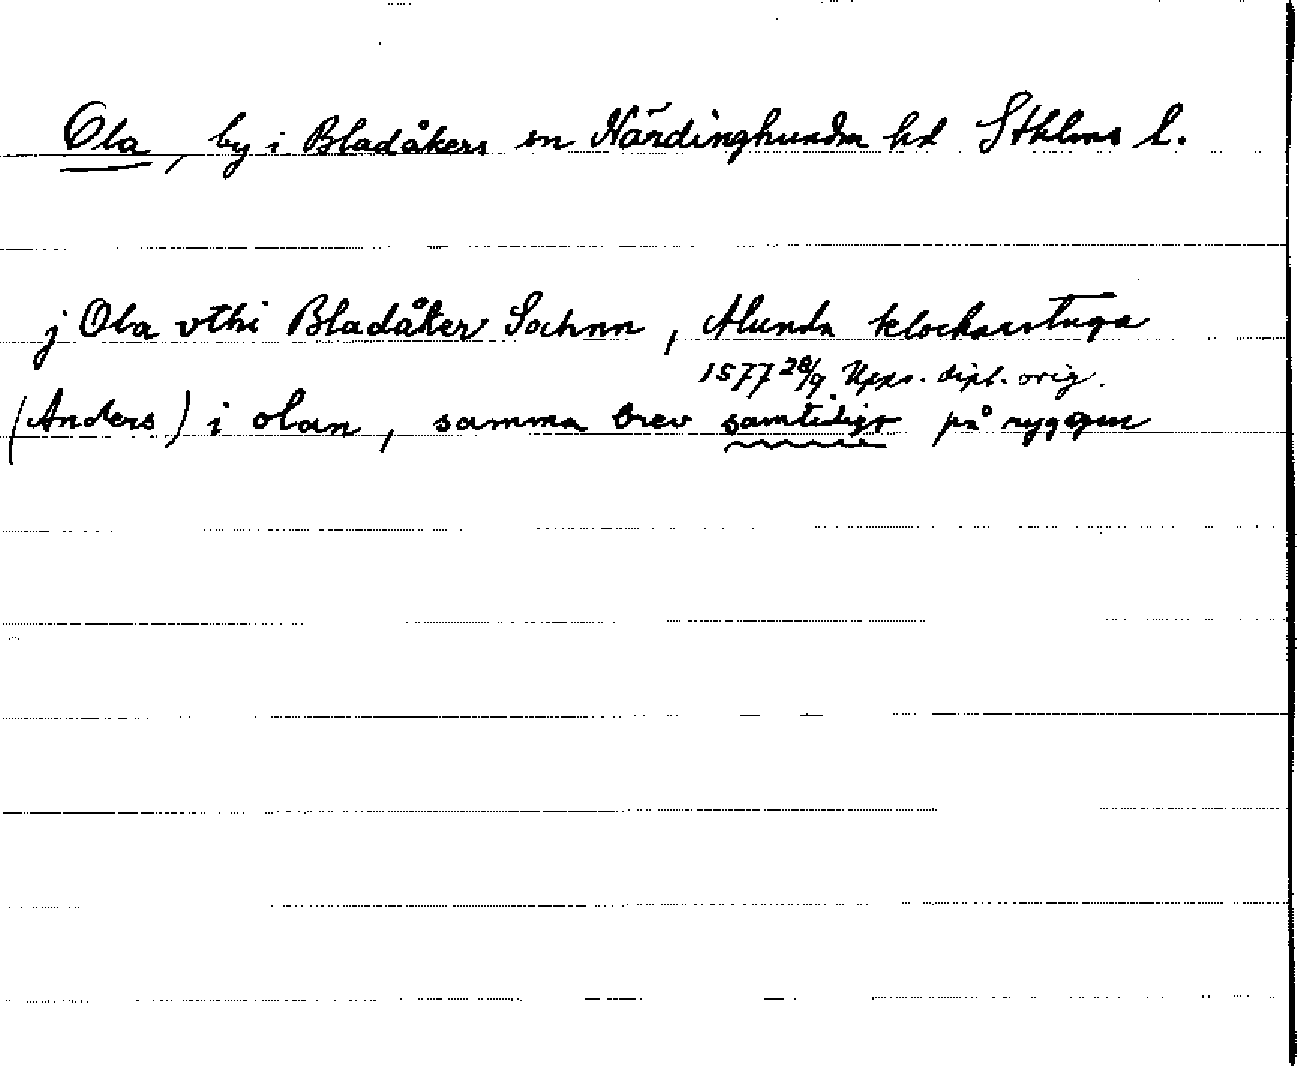 Ola, by i Bladåkers sn Närdinghundra hd Sthlms l.
j Ola vthi Bladåker Sochnn, Alunda klockarstuga
1577 28/9 Upps. dipl. orig.
(Anders) i olan, samma brev samtidigt på ryggen